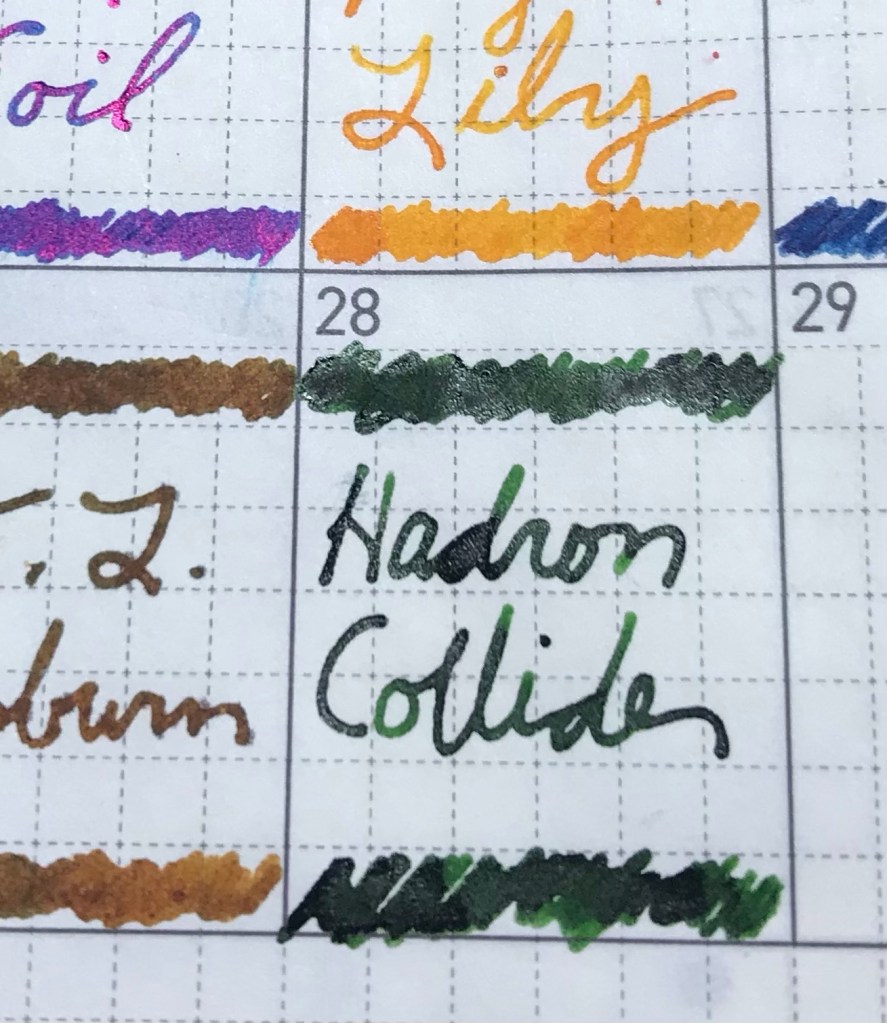 oil
Lily
28
29
L.
burn
Hadron
Collider